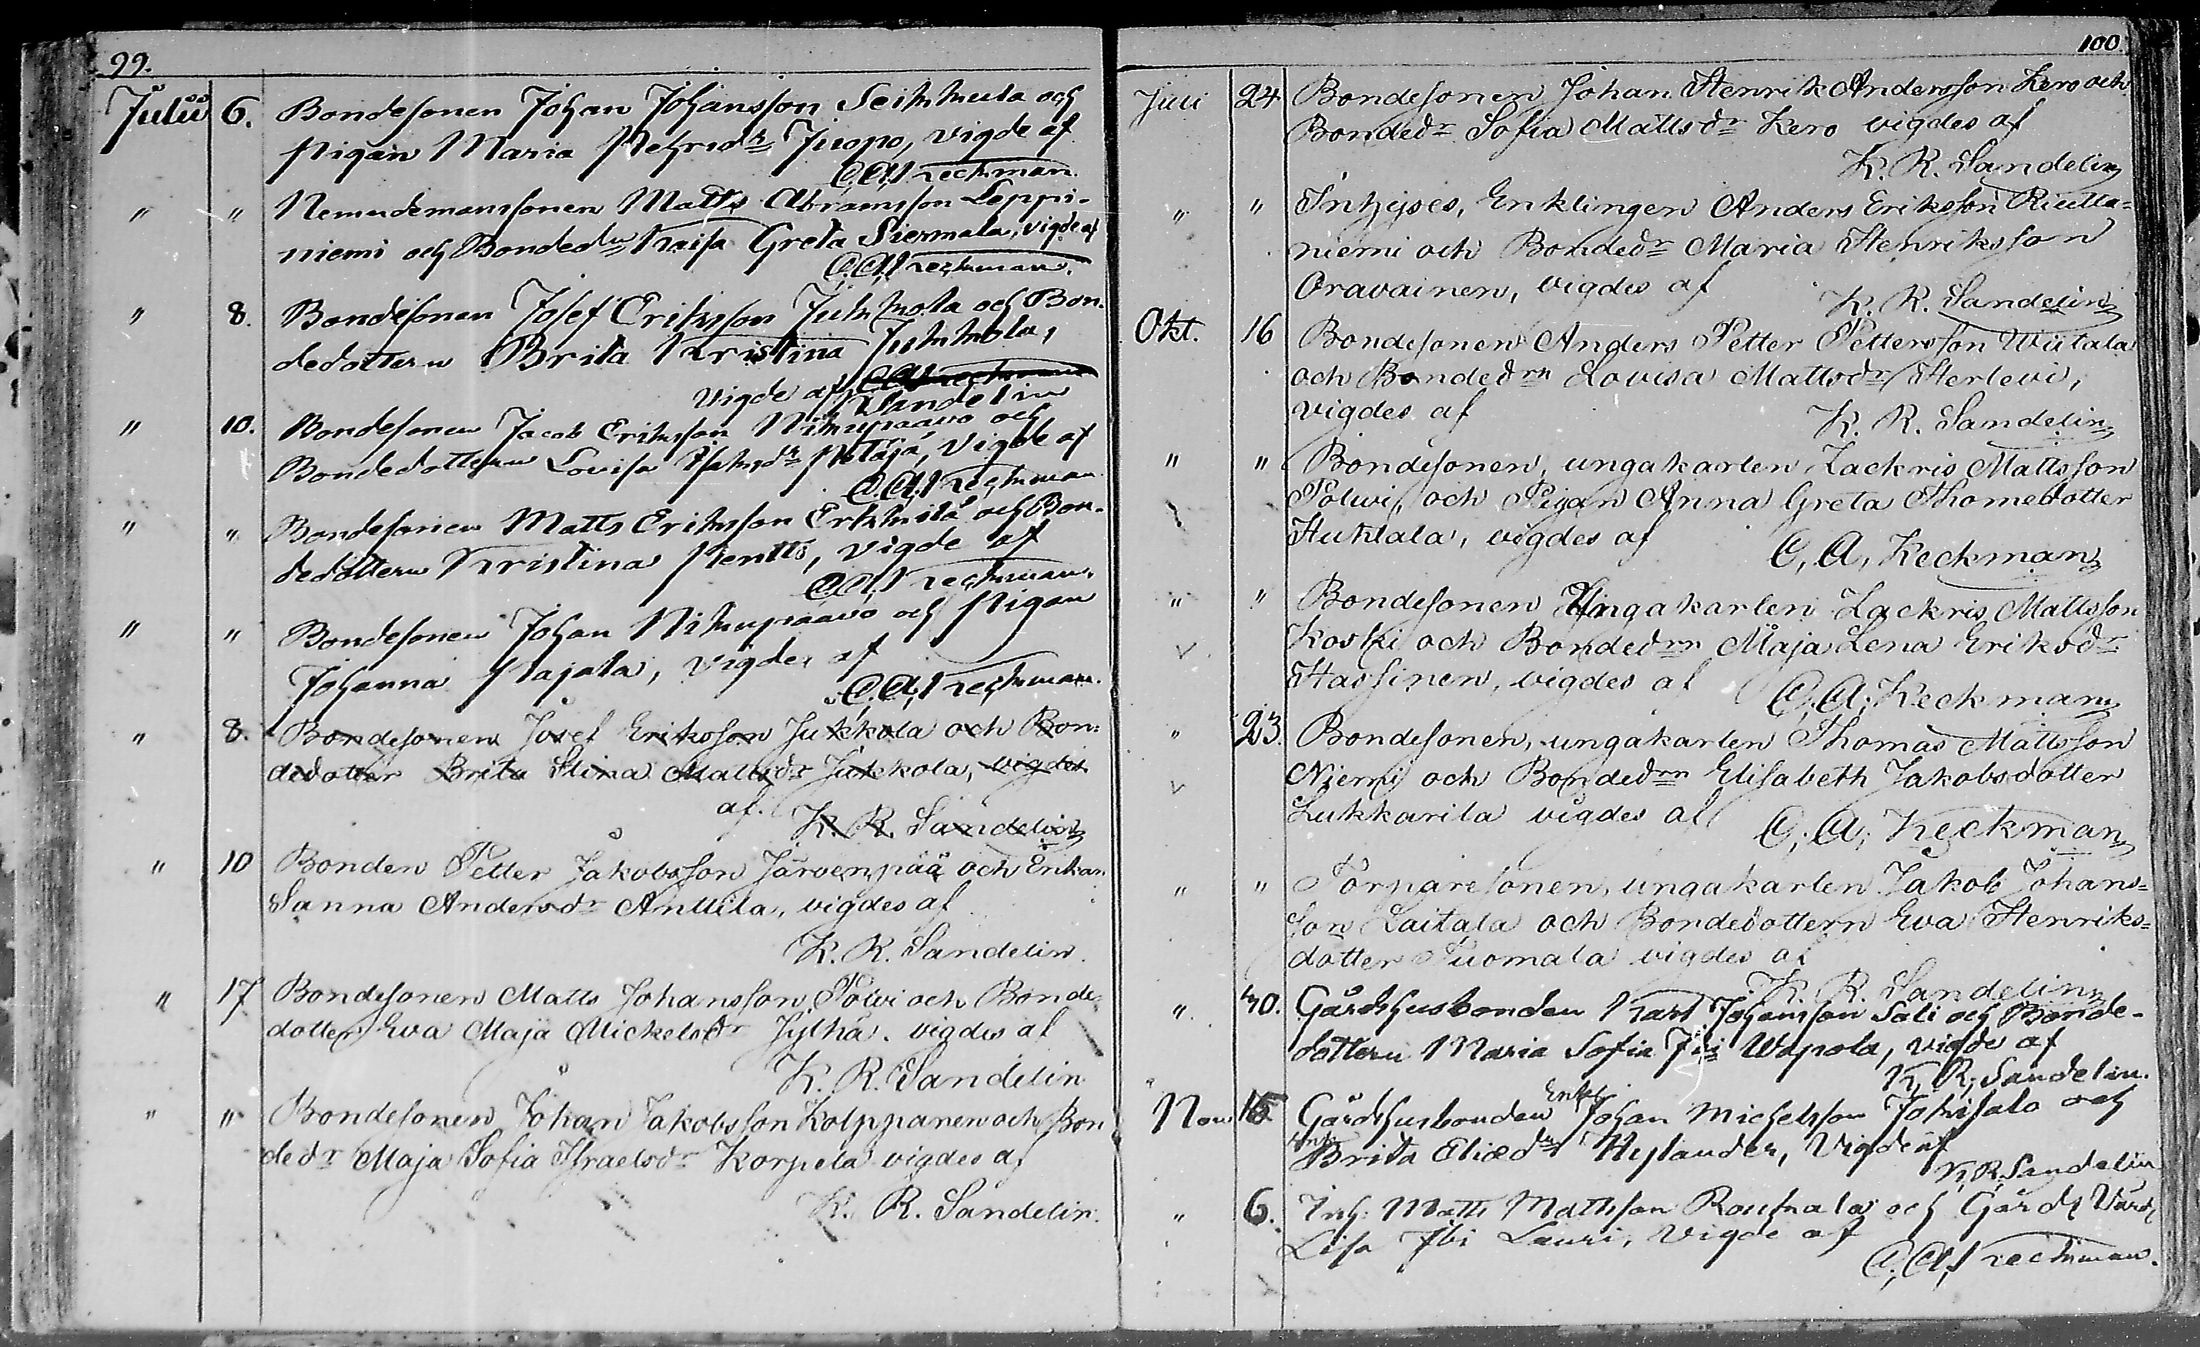 99.
Julii 6. Bondesonen Johan Johansson Seikkula och
pigan Maria Pehrsdr Juopo, vigde af
C. A. Keckman.
" " Nemndemanssonen Matts Abramsson Leppi-
niemi och Bondedrn Kaisa Greta Siermala, vigde af
C. A. Keckman.
" 8. Bondesonen Josef Eriksson Jukkola och Bon-
dedottern Brita Kristina Jukkola,
vigde af C. A. Keckman
Sandelin
" 10. Bondesonen Jacob Eriksson Nikupaavo och
Bondedottern Lovisa Petäjä, vigde af
C. A. Keckman
" " Bondesonen Matts Eriksson Erkkilä och Bon-
dedottern Kristina Pentti, vigde af
C. A. Keckman.
" " Bondesonen Johan Nikupaavo och Pigan
Johanna Pajala, vigde af
C. A. Keckman.
" 8. Bondesonen Josef Eriksson Jukkola och Bon-
dedotter Brita Stina Mattsdr Jukkola, vigdes
af. K. R. Sandelin
" 10 Bonden Petter Jakobsson Järvenpää och Enkan
Sanna Andersdr Anttila, vigdes af
K. R. Sandelin.
" 17 Bondesonen Matts Johansson Polvi och Bonde-
dotter Eva Maja Mickelsdr Jylhä. vigdes af
K. R. Sandelin
" " Bondesonen Johan Jakobsson Kolppanen och Bon
dedr Maja Sofia Israelsdr Korpela vigdes af
K. R. Sandelin.
100.
Juli 24 Bondesonen Johan Henrik Andersson Kero och
Bondedr Sofia Mattsdr Kero vigdes af
K. R. Sandelin
" " Inhyses, Enklingen Anders Eriksson Riutta-
niemi och Bondedr Maria Henriksson
Oravainen, vigdes af
K. R. Sandelin
Okt. 16 Bondesonen Anders Petter Pettersson Wiitala
och Bondedrn Lovisa Mattsdr Herlevi,
vigdes af K. R. Sandelin
" " Bondesonen, ungakarlen Zackris Mattsson
Polvi, och Pigan Anna Greta Thomedotter
Huhtala, vigdes af C. A. Keckman
" " Bondesonen Ungakarlen Zackris Mattsson
Koski och Bondedrn Maja Lena Eriksdr
Hassinen, vigdes af C. A. Keckman
" 23. Bondesonen, ungakarlen Thomas Mattsson
Niemi och Bondedrn Elisabeth Jakobsdotter
Lukkarila vigdes af C. A. Keckman
" " Torparesonen, ungakarlen Jakob Johans-
son Laitala och Bondedottern Eva Henriks-
dotter Tuomala vigdes af
K. R. Sandelin
" 30. Gårdshusbonden Karl Johansson Sali och Bonde-
dottern Maria Sofia Wapola, vigde af
K. R. Sandelin.
Nov 15 Gårdshusbonden Enkl. Johan Michelsson Jokisalo och
Enk. Brita Eliædr Hylander, vigde af
K. R. Sandelin
" 6. Inh. Matts Mattsson Rouhala och Gårds Värd.
Lisa Lauri, vigde af
C. A. Keckman.